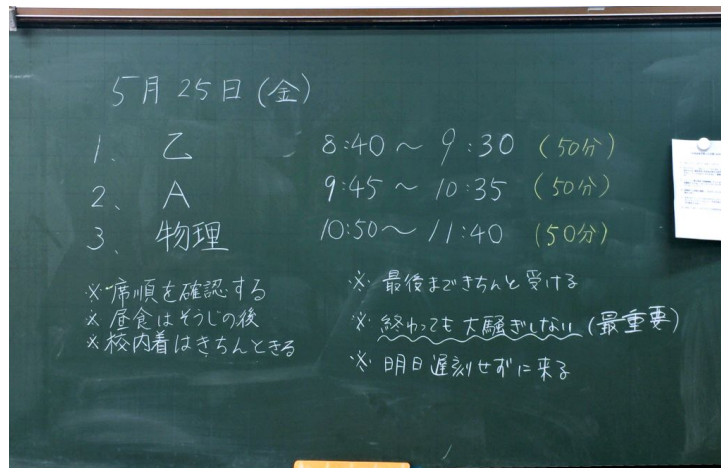 5月25日(金)
1、 乙 8:40～9:30 (50分)
2、 A 9:45～10:35 (50分)
3、 物理 10:50～11:40 (50分)
※席順を確認する
※昼食はそうじの後
※校内着はきちんときる
※ 最後まできちんと受ける
※ 終わっても大騒ぎしない(最重要)
※ 明日遅刻せずに来る